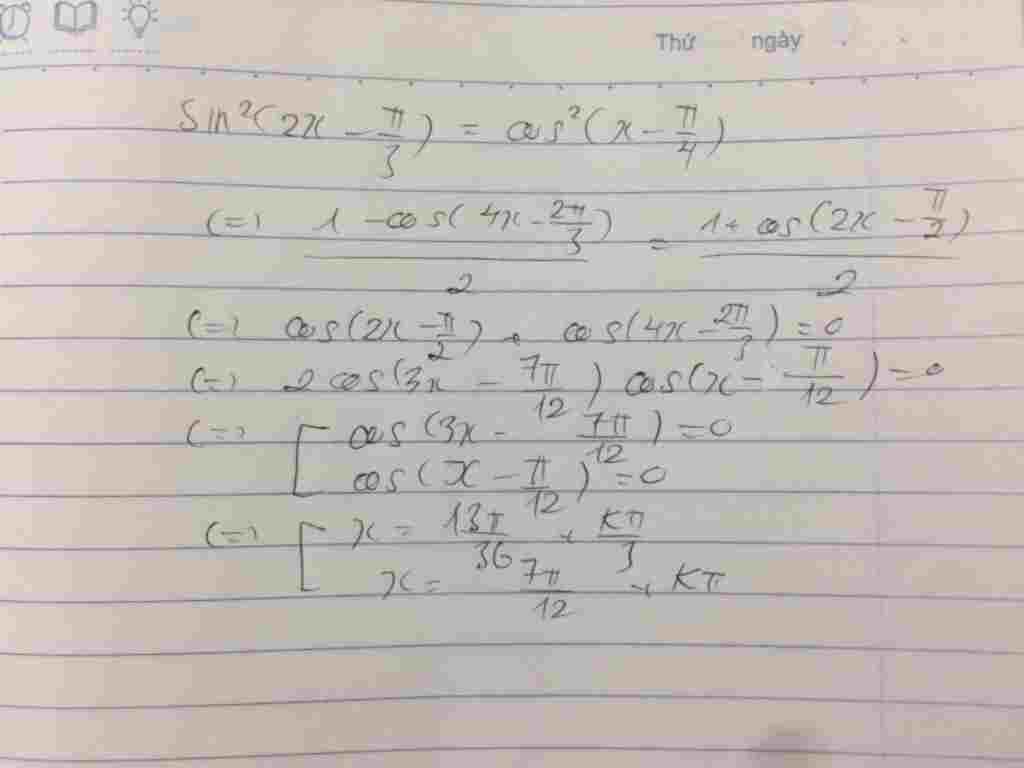 Thứ ngày
Sin²(2x - π/3) = cos²(x - π/4)
(=) (1 - cos(4x - 2π/3))/2 = (1 + cos(2x - π/2))/2
(=) cos(2x - π/2) + cos(4x - 2π/3) = 0
(=) 2cos(3x - 7π/12) cos(x - π/12) = 0
(=) [ cos(3x - 7π/12) = 0
cos(x - π/12) = 0
(=) [ x = 13π/36 + kπ/3
x = 7π/12 + kπ